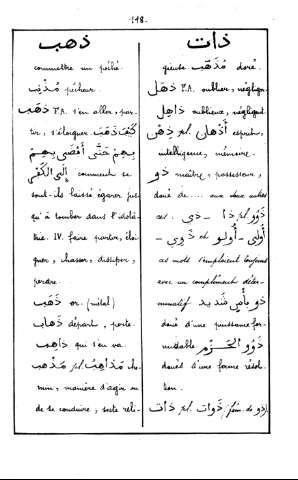 -118-
ذهب
commettre un péché.
مُذْنِب pécheur.
ذَهَبَ P.A. s'en aller, par-
tir, s'éloigner. كَيْفَ ذَهَبَ
بِهِمْ حَتَّى أَفْضَى بِهِمْ
إِلَى الكُفْرِ comment se
sont-ils laissé égarer jus-
qu'à tomber dans l'idolâ-
trie. IV. faire partir, éloi-
gner, chasser, dissiper,
perdre.
ذَهَب or (métal)
ذَهَاب départ, perte.
ذَاهِب qui s'en va.
مَذْهَب pl. مَذَاهِب che-
min, manière d'agir ou
de se conduire; secte reli-
ذات
gieuse مُذَهَّب doré.
ذَهَلَ P.A. oublier, négliger.
ذَاهِل oublieux, négligent.
ذِهْن pl. أَذْهَان esprit,
intelligence, mémoire.
ذُو maître, possesseur,
doué de.... aux deux autres
cas: ذَا - ذِي. pl. ذَوُو
ذَوِي - et أُولُو - أُولِي
ces mots s'emploient toujours
avec un complément déter-
minatif ذو بأس شديد
doué d'une puissance for-
midable ذَوُو الحَزْم
doués d'une ferme résolu-
tion.
ذات pl. ذَوات (fém. de ذو).